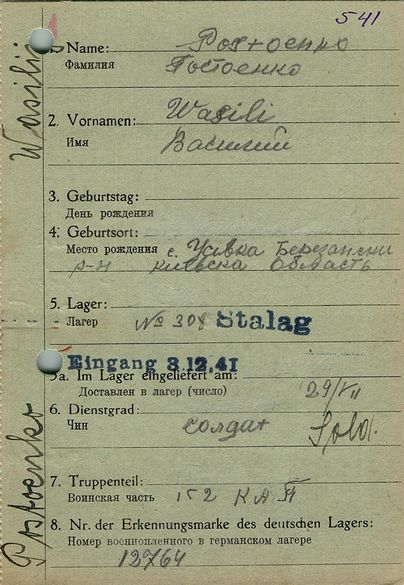 541
1. Name: Postoenko
Фамилия Постоенко
2. Vornamen: Wasili
Имя Василий
3. Geburtstag:
День рождения
4. Geburtsort:
Место рождения с. Усивка Березански
р-н Киевска область
5. Lager:
Лагер № 308 Stalag
Eingang 8.12.41
5a. Im Lager eingeliefert am:
Доставлен в лагер (число) 29/VII
6. Dienstgrad:
Чин солдат Sold.
7. Truppenteil:
Воинская часть 152 КАП
8. Nr. der Erkennungsmarke des deutschen Lagers:
Номер военнопленного в германском лагере
12764
Postoenko Wasili